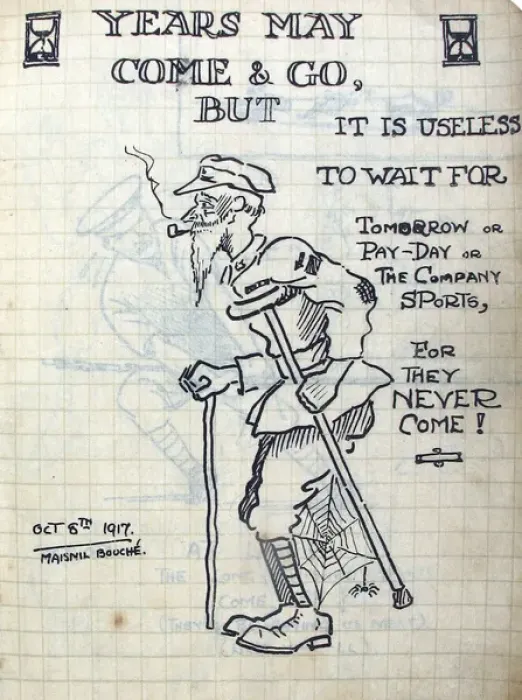 YEARS MAY
COME & GO,
BUT
IT IS USELESS
TO WAIT FOR
TOMORROW OR
PAY-DAY OR
THE COMPANY
SPORTS,
FOR
THEY
NEVER
COME!
OCT 8TH 1917.
MAISNIL BOUCHÉ.